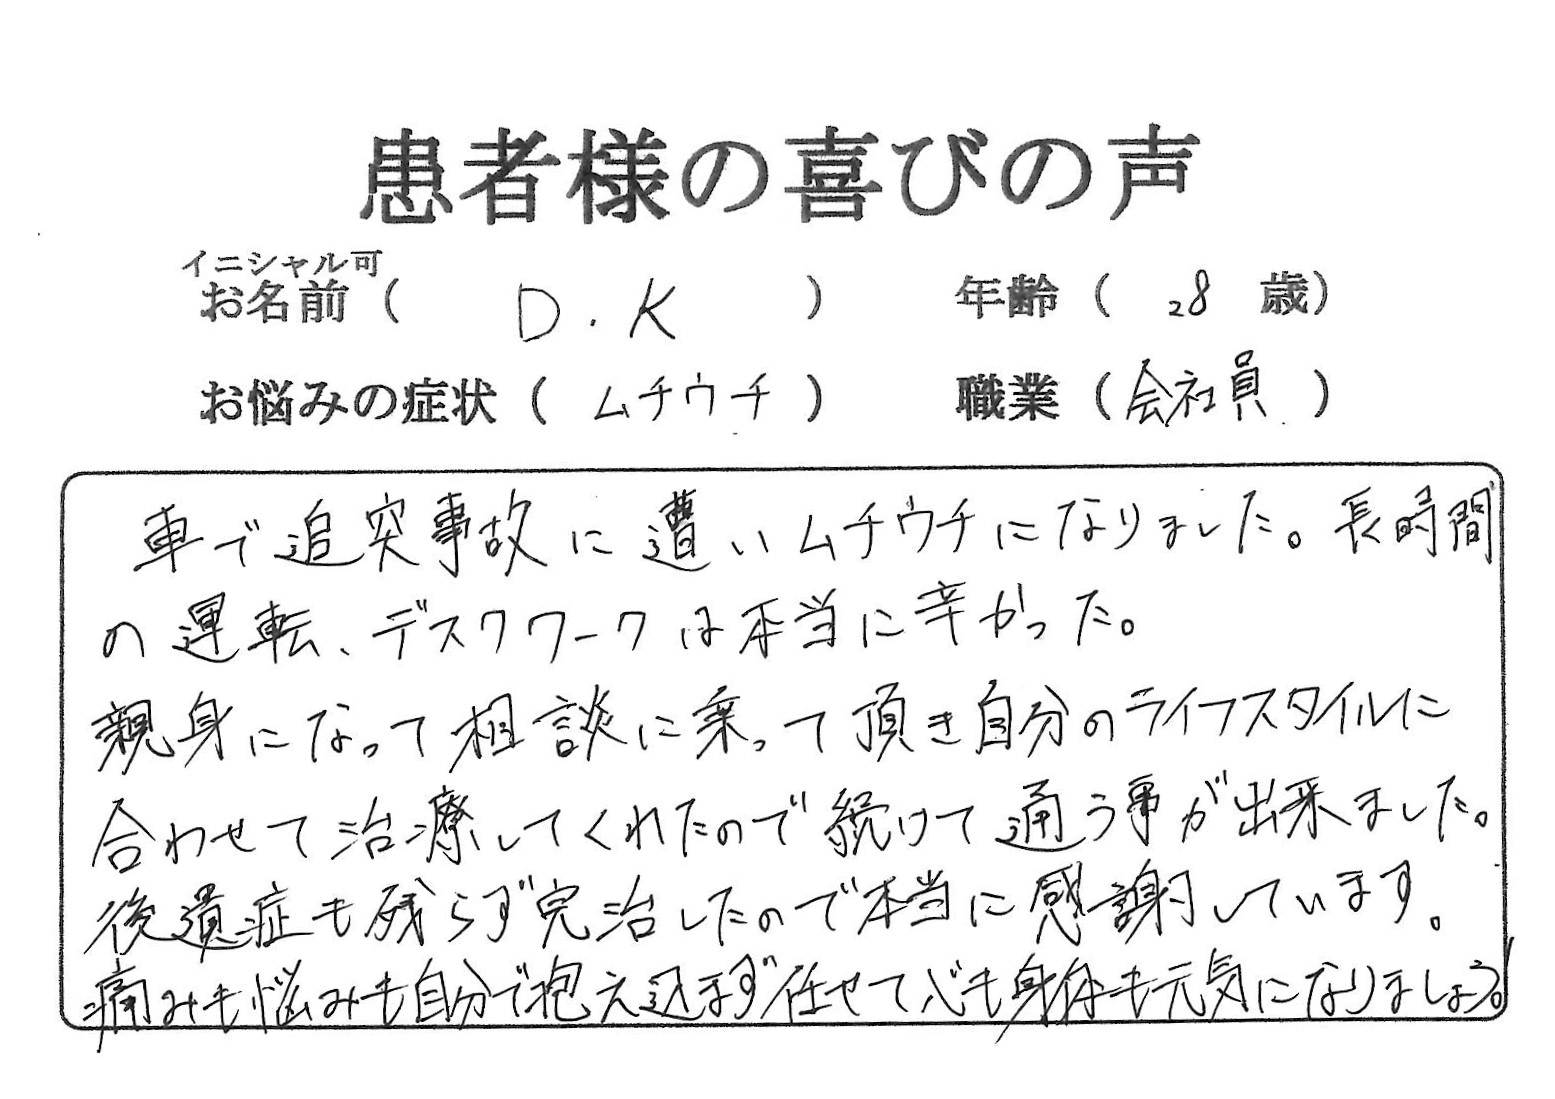 患者様の喜びの声
イニシャル可
お名前 ( D.K ) 年齢 ( 28 歳)
お悩みの症状 ( ムチウチ ) 職業 ( 会社員 )
車で追突事故に遭いムチウチになりました。長時間
の運転、デスクワークは本当に辛かった。
親身になって相談に乗って頂き自分のライフスタイルに
合わせて治療してくれたので続けて通う事が出来ました。
後遺症も残らず完治したので本当に感謝しています。
痛みも悩みも自分で抱え込まず任せて心も身体も元気になりましょう!